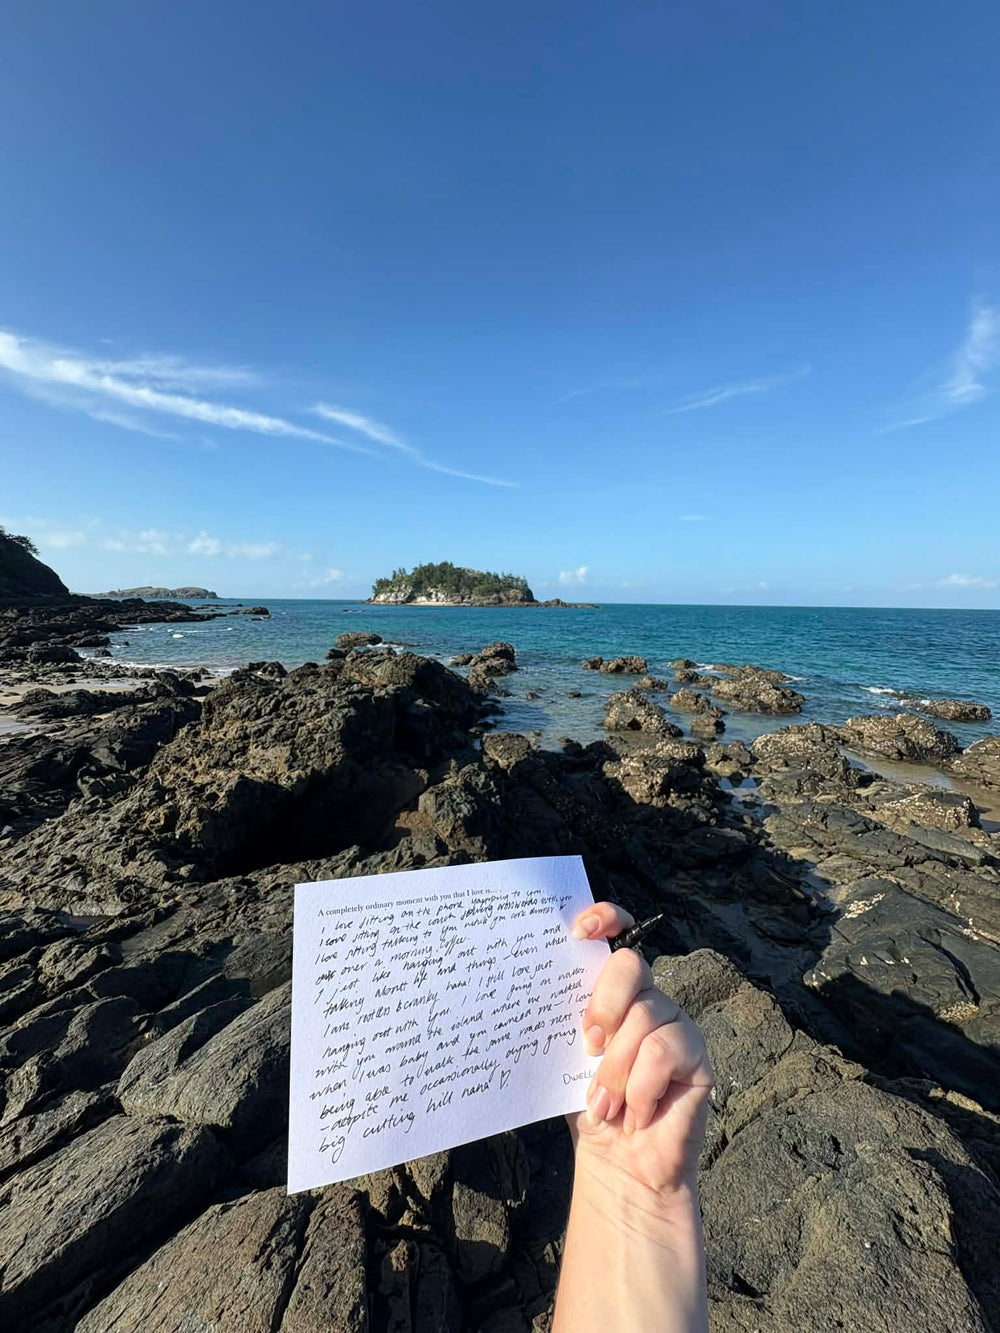 A completely ordinary moment with you that I love is...
I love sitting on the phone yapping to you.
I love sitting on the couch solving crosswords with you
I love sitting talking to you while you cook dinner &
over a morning coffee.
I just like hanging out with you and
talking about life and things - even when
I am rotten & cranky haha! I still love just
hanging out with you. I love going on walks
with you around the island where we walked
when I was baby and you carried me - I love
being able to walk the same roads next to
- despite me occasionally dying going
big cutting hill haha' ♡
Dwell